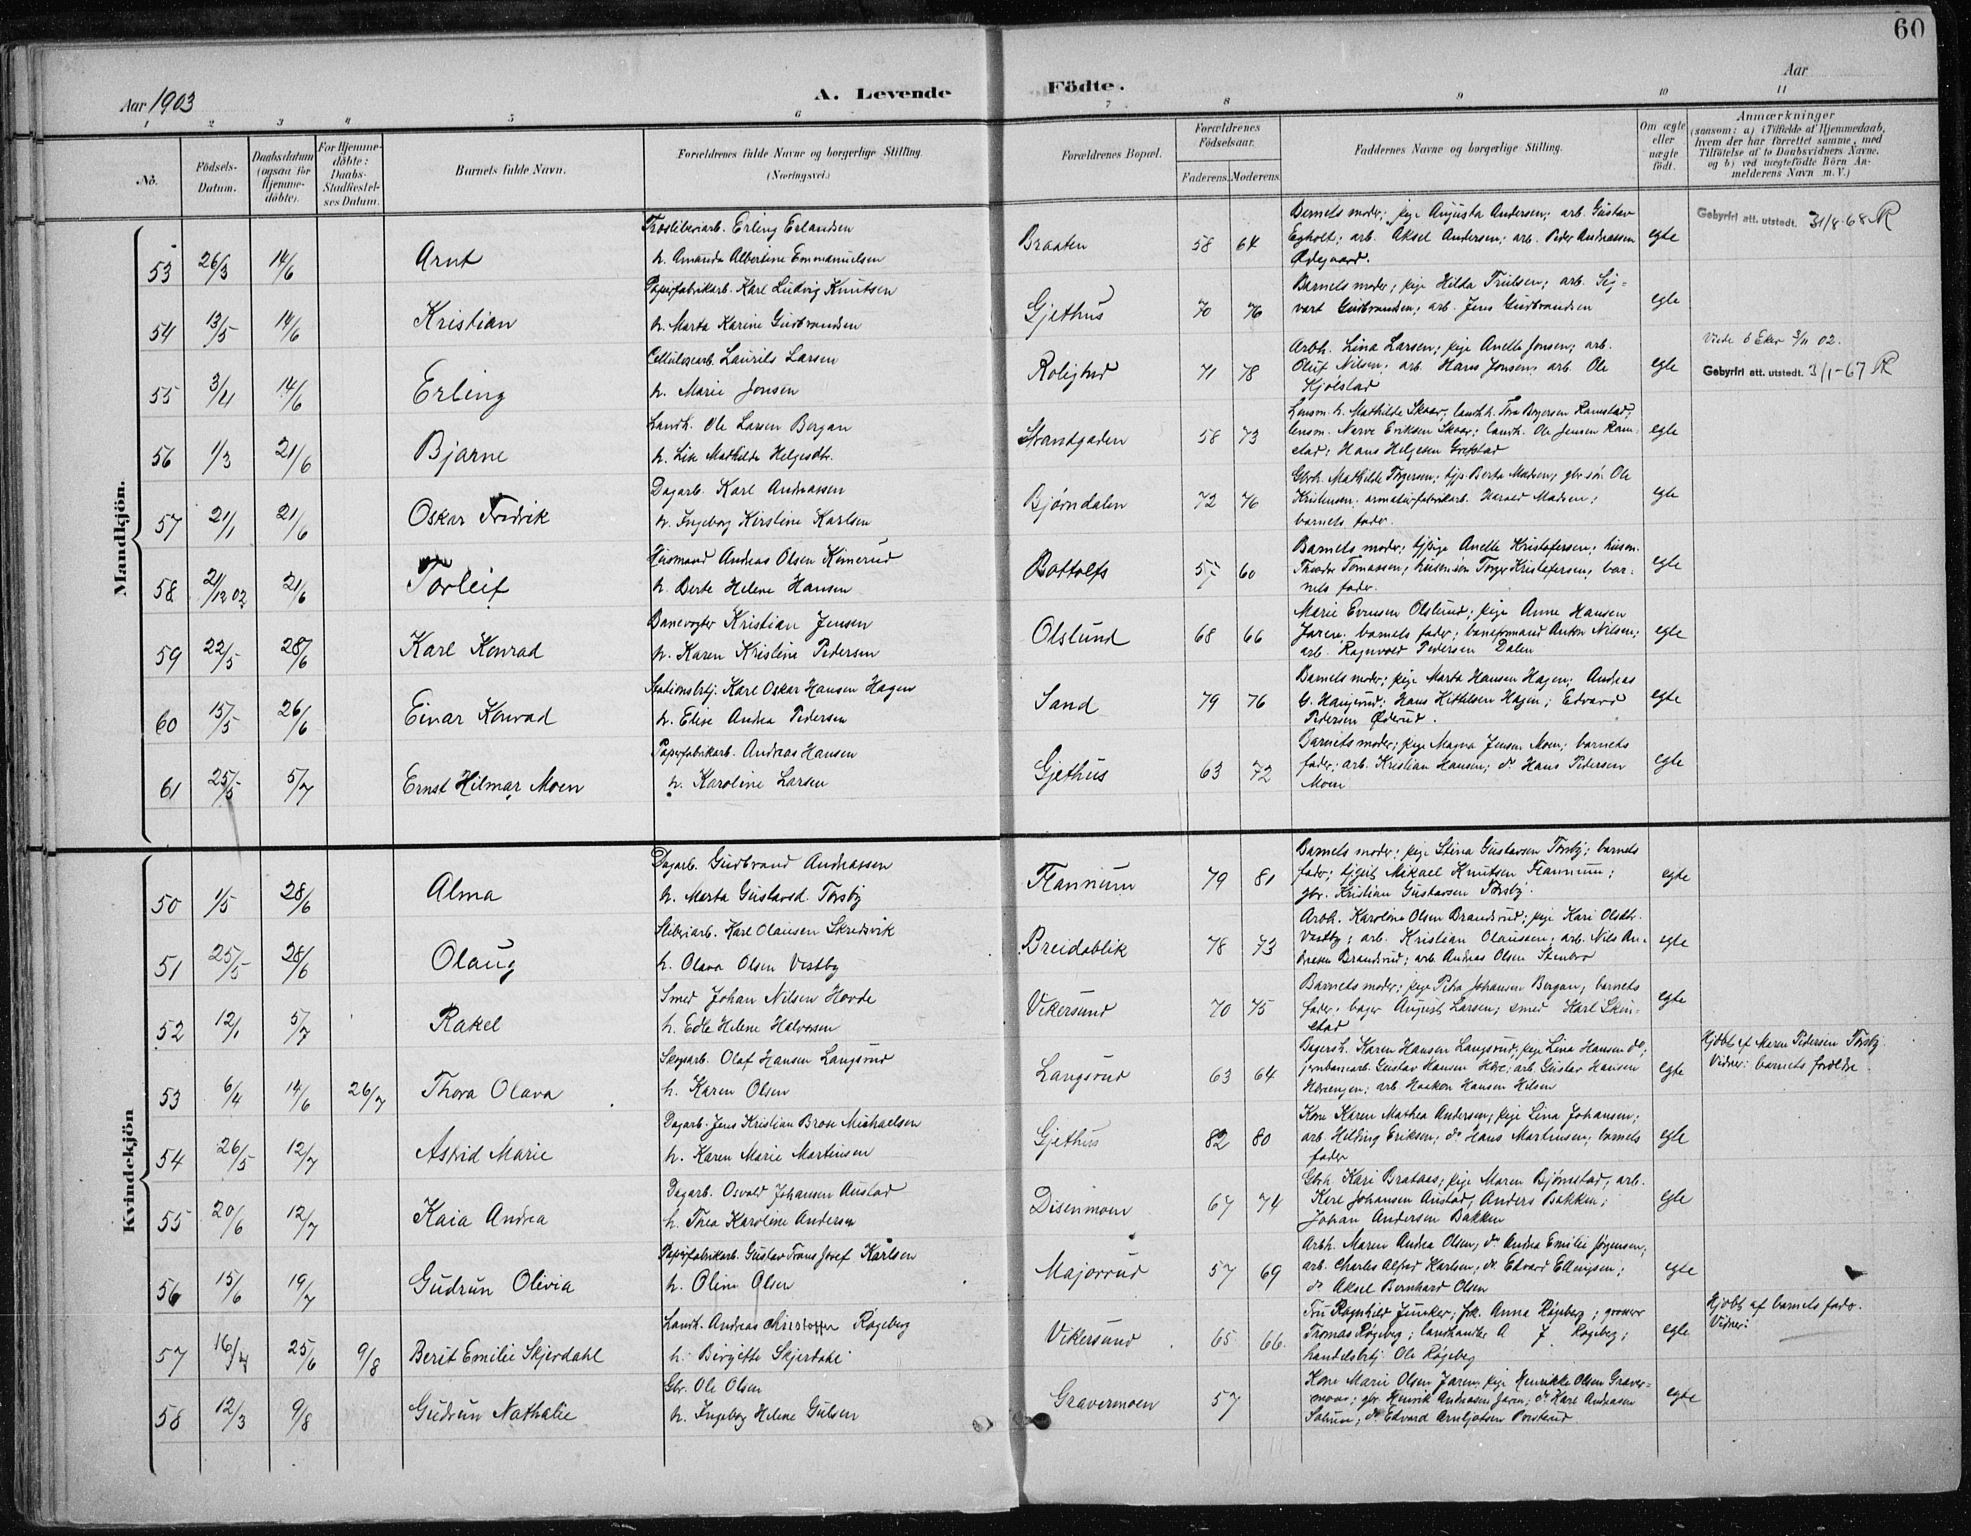 60
Aar 1903
A. Levende Födte.
Aar
1 2 3 4 5 6 7 8 9 10 11
No.
Födsels-Datum.
Daabsdatum (ogsaa for Hjemme-döbte).
For Hjemme-döbte: Daabs-Stadfæstel-ses Datum.
Barnets fulde Navn.
Forældrenes fulde Navne og borgerlige Stilling.
(Næringsvei.)
Forældrenes Bopæl.
Forældrenes Födselsaar.
Faderens. Moderens.
Faddernes Navne og borgerlige Stilling.
Om ægte eller uægte födt.
Anmærkninger
(saasom: a) i Tilfælde af Hjemmedaab, hvem der har forrettet samme, med Tilföielse af to Daabsvidners Navne. og b) ved uægtefödte Börn An-melderens Navn m. V.)
Mandkjön.
53 26/3 14/6 Arnt
Træsliberiarb. Erling Erlandsen
h. Amanda Albertine Emmanuelsen
Braaten 58 64
Barnets moder; pige Augusta Andersen; arb. Gustav
Egholt; arb. Aksel Andersen; arb. Peder Andreassen
Ødegaard.
egte
Gebyrfri att. utstedt. 31/8-68
54 13/5 14/6 Kristian
Papirfabrikarb. Karl Ludvig Knutsen
h. Marta Karine Gudbrandsen
Gjethus 70 76
Barnets moder; pige Hilda Trulsen; arb. Sig-
vart Gudbrandsen; arb. Jens Gudbrandsen
egte
55 14/6 Erling
Cellulosearb. Laurits Larsen
h. Marie Jonsen
Rolighed 71 78
Arbh. Lina Larsen; pige Anette Jonsen; arb.
Oluf Nilsen; arb. Hans Jonsen; arb. Ole
Kjølstad
egte
Viede 02.
Gebyrfri att. utstedt. 3/1-67
56 1/3 21/6 Bjarne
Landh. Ole Larsen Bergan
h. Lise Mathilde Helgesdtr.
Strandgaden 58 73
Lensm. h. Mathilde Skaar; landh.h. Tora Borgersen Ramstad;
lensm. Narve Eriksen Skaar; landh. Ole Jensen Ram-
stad; Hans Helgesen
egte
57 21/1 21/6 Oskar Fredrik
Dagarb. Karl Andreassen
h. Ingeborg Kirstine Karlsen
Bjørndalen 72 76
Gbrh. Mathilde Torgersen; tjp. Berta Madsen; gbr.søn Ole
Kristensen; armaturfabrikarb. Harald Madsen;
barnets fader.
egte
58 21/12 02 21/6 Torleif
Husmand Andreas Olsen Kimerud
h. Berte Helene Hansen
Bottolfs 57 60
Barnets moder; tjpige Anette Kristofersen; husm.
Theodor Tomassen; husm.søn Torger Kristofersen; bar-
nets fader.
egte
59 22/5 28/6 Karl Konrad
Banevogter Kristian Jensen
h. Karen Kristine Pedersen
Olslund 68 66
Marie Evensen Olslund; pige Anne Hansen
Jaren; barnets fader; baneformand Anton Nilsen;
arb. Ragnvald Pedersen Dalen
egte
60 15/5 26/6 Einar Konrad
Stationsbetj. Karl Oskar Hansen Hagen
h. Elise Andrea Pedersen
Sand 79 76
Barnets moder; pige Marta Hansen Hagen; Andreas
G. Haugerud; Hans Kittelsen Hagen; Edvard
Pedersen Øderud.
egte
61 25/5 5/7 Ernst Hilmar Moen
Papirfabrikarb. Andreas Hansen
h. Karoline Larsen
Gjethus 63 72
Barnets moder; pige Magna Jensen Moen; barnets
fader; arb. Kristian Hansen; do Hans Pedersen
Moen
egte
Kvindekjön
50 1/5 28/6 Alma
Dagarb. Gudbrand Andreassen
h. Marta Gustavsd. Torsby
Flannum 79 81
Barnets moder; pige Stina Gustavsen Torsby; barnets
fader; tjgut Mikael Knutsen Flannum;
gbr. Kristian Gustavsen Torsby.
egte
51 25/5 28/6 Olaug
Sliberiarb. Karl Olausen Skredsvik
h. Olava Olsen Vestby
Breidablik 78 73
Arbh. Karoline Olsen Brandsrud; pige Kari Olsdtr.
Vestby; arb. Kristian Olaussen; arb. Nils An-
dresen Brandsrud; arb. Andreas Olsen Stenbro
egte
52 12/1 5/7 Rakel
Smed Johan Nilsen Hovde
h. Edle Helene Halvorsen
Vikersund 70 75
Barnets moder; pige Petra Johansen Bergan; barnets
fader; bager August Larsen; smed Karl Skin-
stad
egte
53 6/4 14/6 26/7 Thora Olava
Skogsarb. Olaf Hansen Langsrud
h. Karen Olsen
Langsrud 63 64
Bagersh. Karen Hansen Langsrud; pige Lina Hansen do;
jernbanearb. Gustav Hansen Hære; arb. Gustav Hansen
Horengen; arb. Haakon Hansen Hilsen
egte
Hjdøbt af Maren Pedersen Torsby.
Vidner: barnets forældre.
54 26/5 12/7 Astrid Marie
Dagarb. Jens Kristian Brose Michaelsen
h. Karen Marie Martinsen
Gjethus 82 80
Kone Karen Mathea Andersen; pige Lina Johansen;
arb. Hilding Eriksen; do Hans Martinsen; barnets
fader
egte
55 20/6 12/7 Kaia Andrea
Dagarb. Osvald Johansen Austad
h. Thea Karoline Andersen
Disenmoen 67 74
Gbrh. Kari Brataas; pige Maren Bjørnstad; arb.
Karl Johansen Austad; Anders Bakken;
Johan Andersen Bakken
egte
56 15/6 19/7 Gudrun Olivia
Papirfabrikarb. Gustav Frans Josef Karlsen
h. Oline Olsen
Majorrud 57 69
Arbh. Maren Andrea Olsen; do Andrea Emilie Jørgensen;
arb. Charles Alfred Karlsen; do Edvard Ellingsen;
do Aksel Bernhard Olsen
egte
57 16/4 25/6 9/8 Berit Emilie Skjerdahl
Landh. Andreas Christoffer Røgeberg
h. Birgitte Skjerdahl
Vikersund 65 66
Fru Ragnhild Juncker; frk. Anna Røgeberg; grosserer
Thomas Røgeberg; landhandler A J Røgeberg;
handelsbetj. Ole Røgeberg
egte
Hjdøbt af barnets fader.
Vidner:
58 12/3 9/8 Gudrun Nathalie
Gbr. Ole Olsen
h. Ingeborg Helene Gulsen
Gravermoen 57
Kone Marie Olsen Jaren; pige Henrikke Olsen Graver-
moen; gbr. Henrik Andreasen Jaren; do Karl Andreasen
Solum; do Edvard Arnljotsen
egte